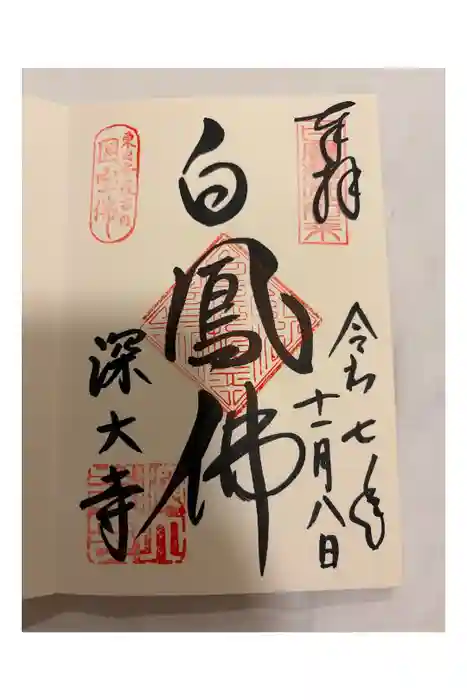 奉拝
令和七年
十一月八日
白鳳佛
深大寺